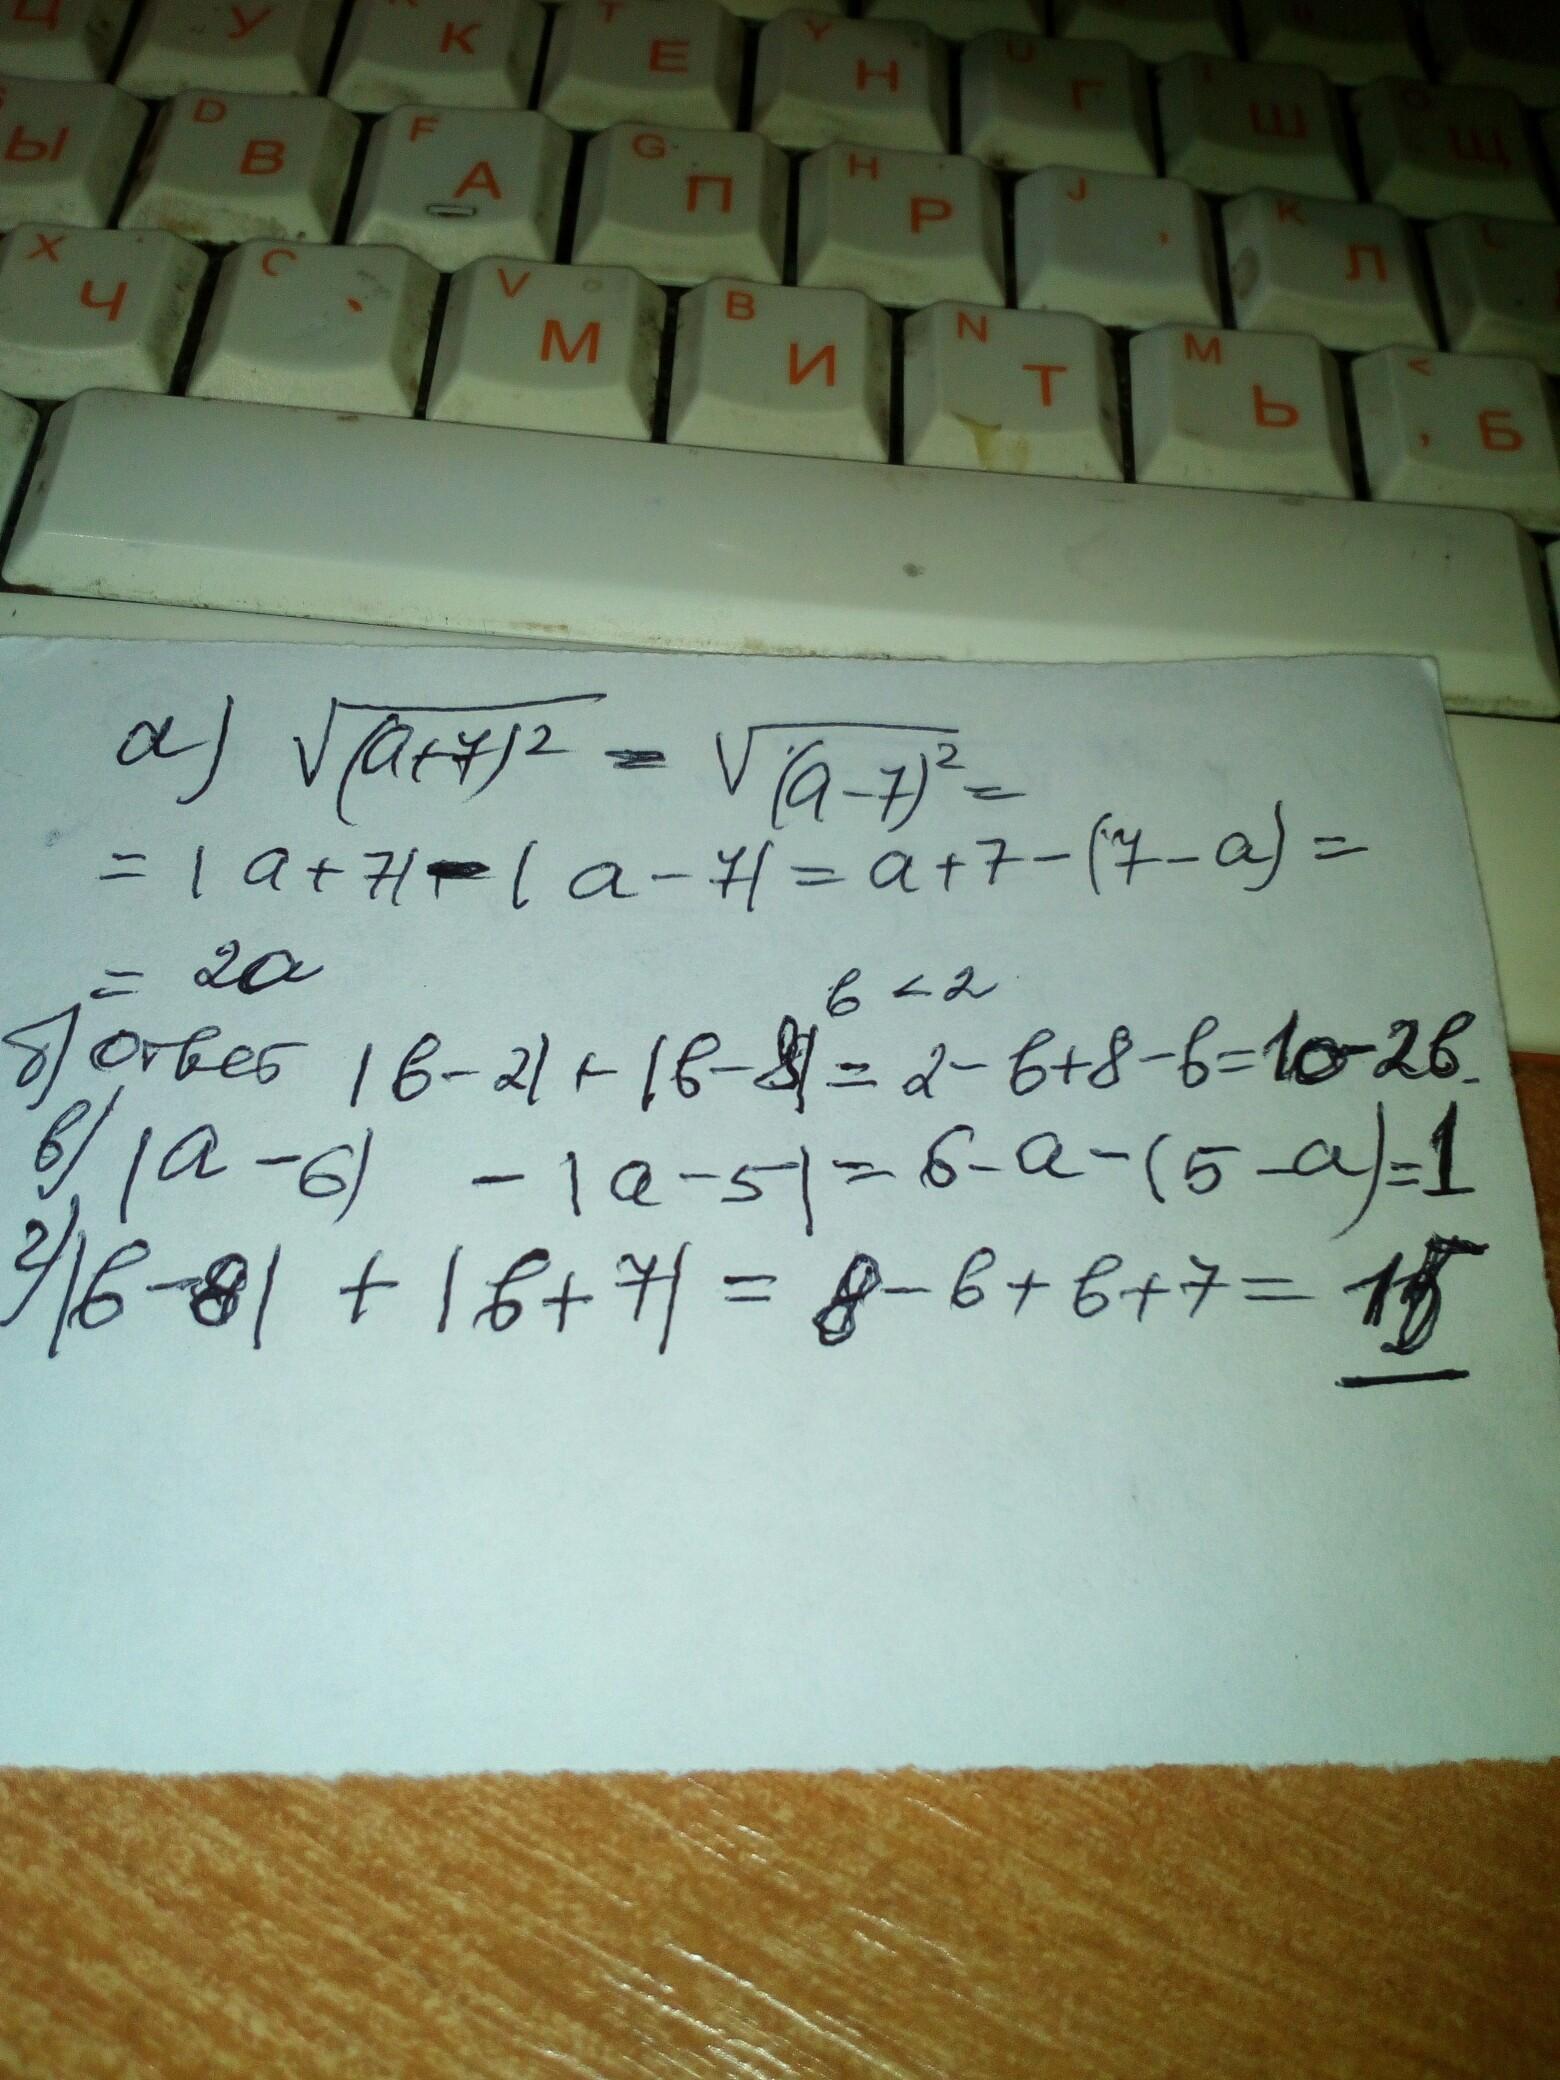 Ц У К Е Y Н U Г I Ш O Щ
Ы D В F А G П H Р J K Л L
X Ч C V М B И N Т M Ь < , Б
а) √(a+7)² - √(a-7)² =
= |a+7| - |a-7| = a+7-(7-a) =
= 2a
в < 2
б) ответ |в-2| + |в-8| = 2-в+8-в=10-2в.
в) |a-6| - |a-5| = 6-a-(5-a)=1
г) |в-8| + |в+7| = 8-в+в+7 = 15